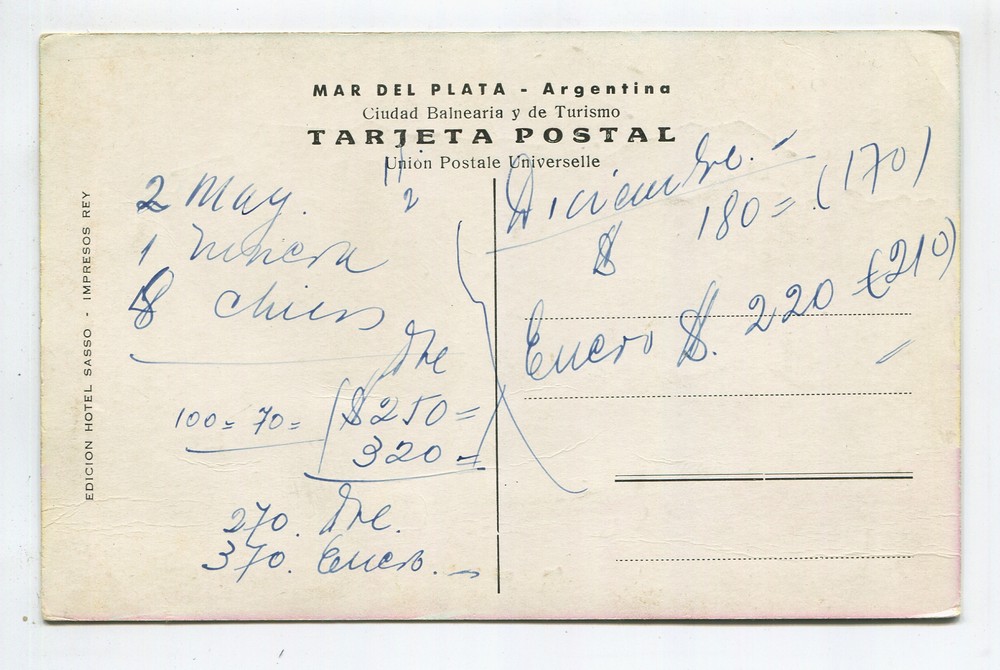 MAR DEL PLATA - Argentina
Ciudad Balnearia y de Turismo
TARJETA POSTAL
Unión Postale Universelle
EDICION HOTEL SASSO - IMPRESOS REY
2 May.
1
8 chicos
Dbre
100= 70= $250=
320=
270. Dbre.
370. Enero.
Diciembre.
$ 180= (170)
Enero $. 220 (210)